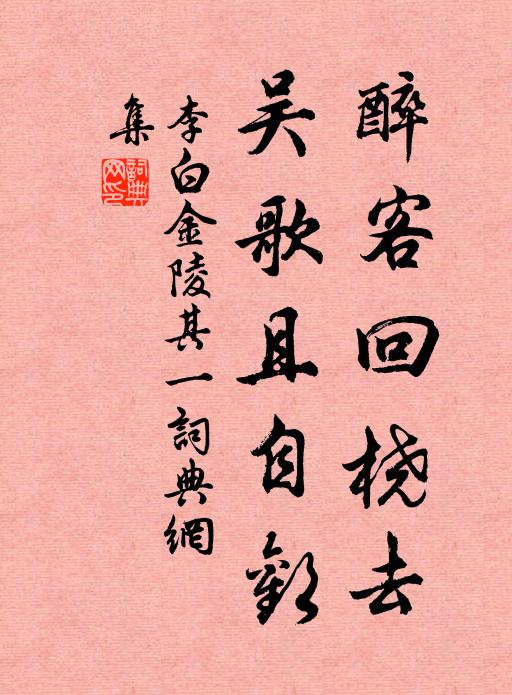 醉客回桡去
吴歌且自歡
李白金陵其一詞典網
集
詞典网印